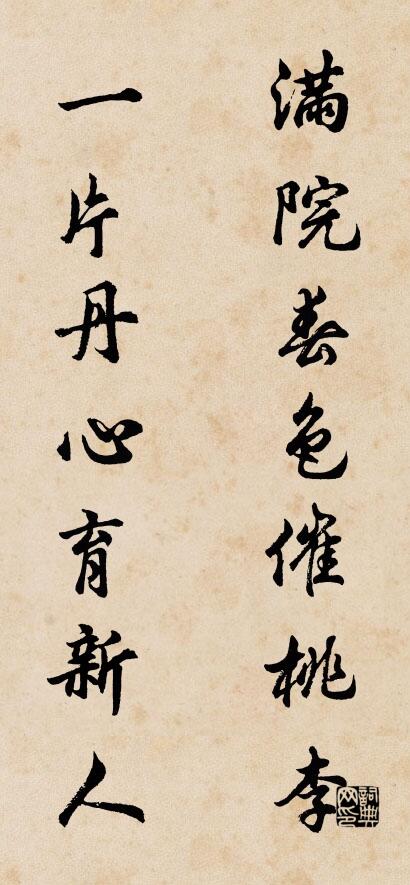 满院春色催桃李
一片丹心育新人
詞典网印